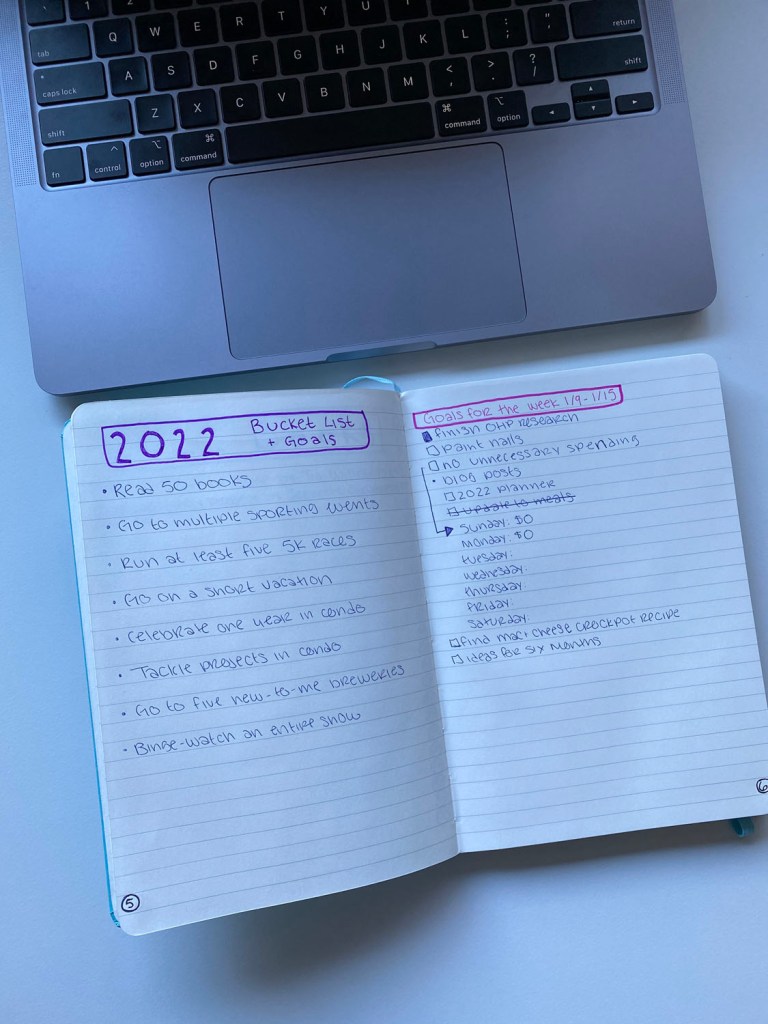 ` 1 2
tab Q W E R T Y U I O P return
caps lock A S D F G H J K L ; : ' "
shift Z X C V B N M , < . > / ? shift
fn control option command command option
2022 Bucket List
+ Goals
• Read 50 books
• Go to multiple sporting events
• Run at least five 5K races
• Go on a short vacation
• Celebrate one year in condo
• Tackle projects in condo
• Go to five new-to-me breweries
• Binge-watch an entire show
5
Goals for the week 1/9-1/15
finish OHP research
paint nails
no unnecessary spending
• blog posts
2022 planner
update to meals
Sunday: $0
Monday: $0
Tuesday:
Wednesday:
Thursday:
Friday:
Saturday:
find mac + cheese crockpot recipe
ideas for six months
6